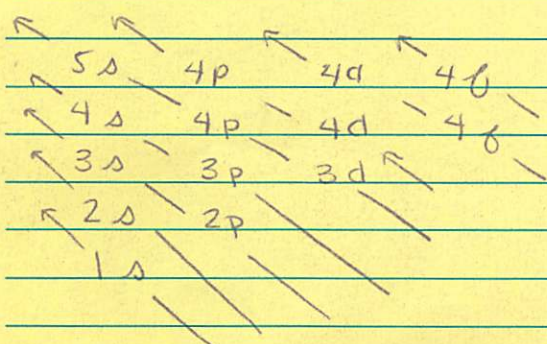 5s 4p 4d 4f
4s 4p 4d 4f
3s 3p 3d
2s 2p
1s